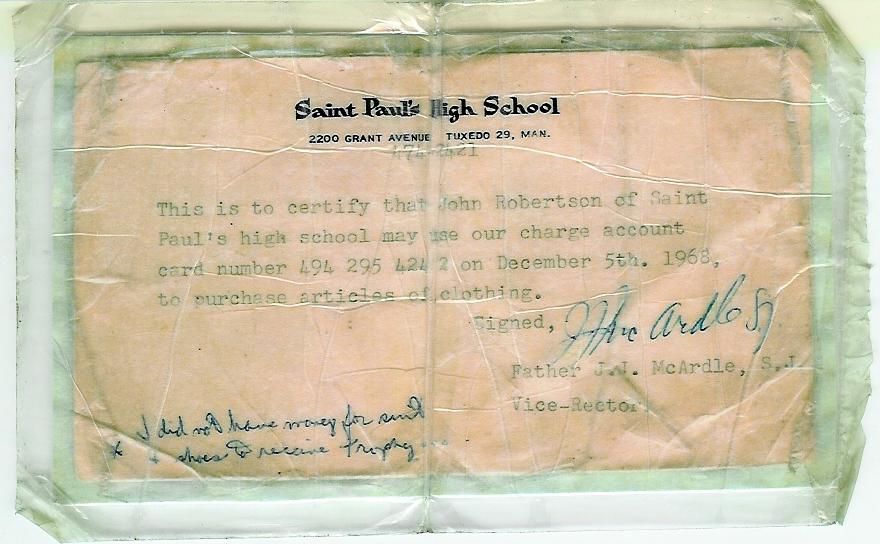 Saint Paul's High School
2200 GRANT AVENUE TUXEDO 29, MAN.
This is to certify that John Robertson of Saint
Paul's high school may use our charge account
card number 494 295 424 2 on December 5th. 1968,
to purchase articles of clothing.
Signed, J J Mc Ardle S.J.
Father J.J. McArdle, S.J.
Vice-Rector
I did not have money for suit
* + shoes to receive trophy